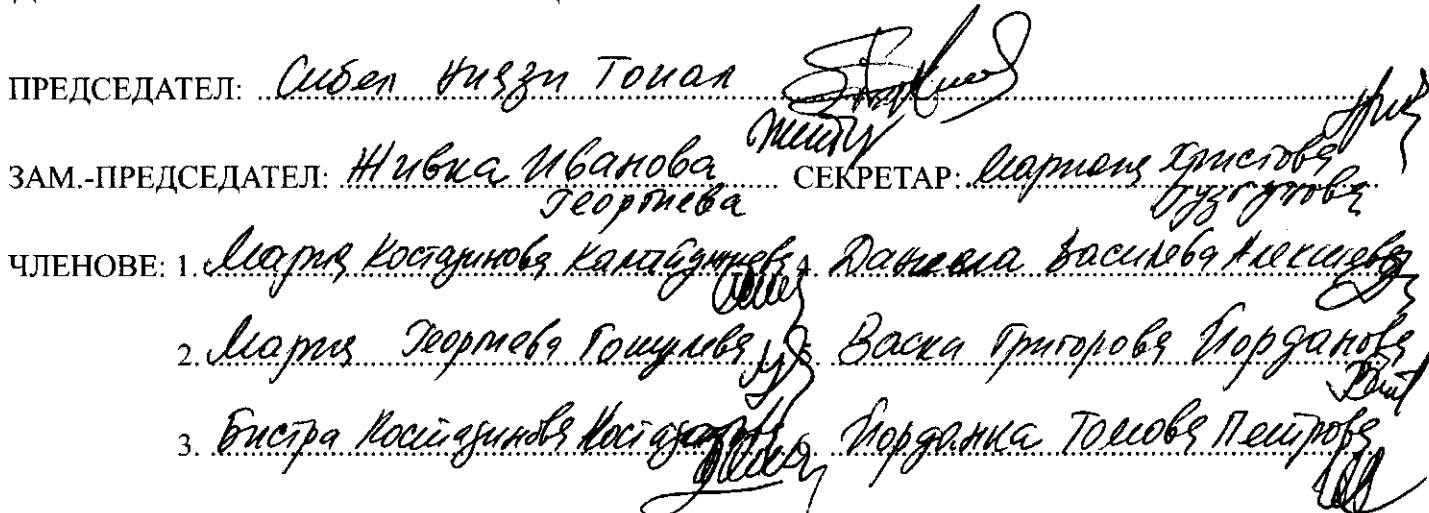 ПРЕДСЕДАТЕЛ: Сибел Ниязи Топал
ЗАМ.-ПРЕДСЕДАТЕЛ: Живка Иванова Георгиева СЕКРЕТАР: Мариана Христова
ЧЛЕНОВЕ: 1. Мария Костадинова Калайджиева 4. Даниела Василева Алексиева
2. Мария Георгиева 5. Васка Григорова Йорданова
3. Бистра Костадинова Костадинова 6. Йорданка Томова Петрова